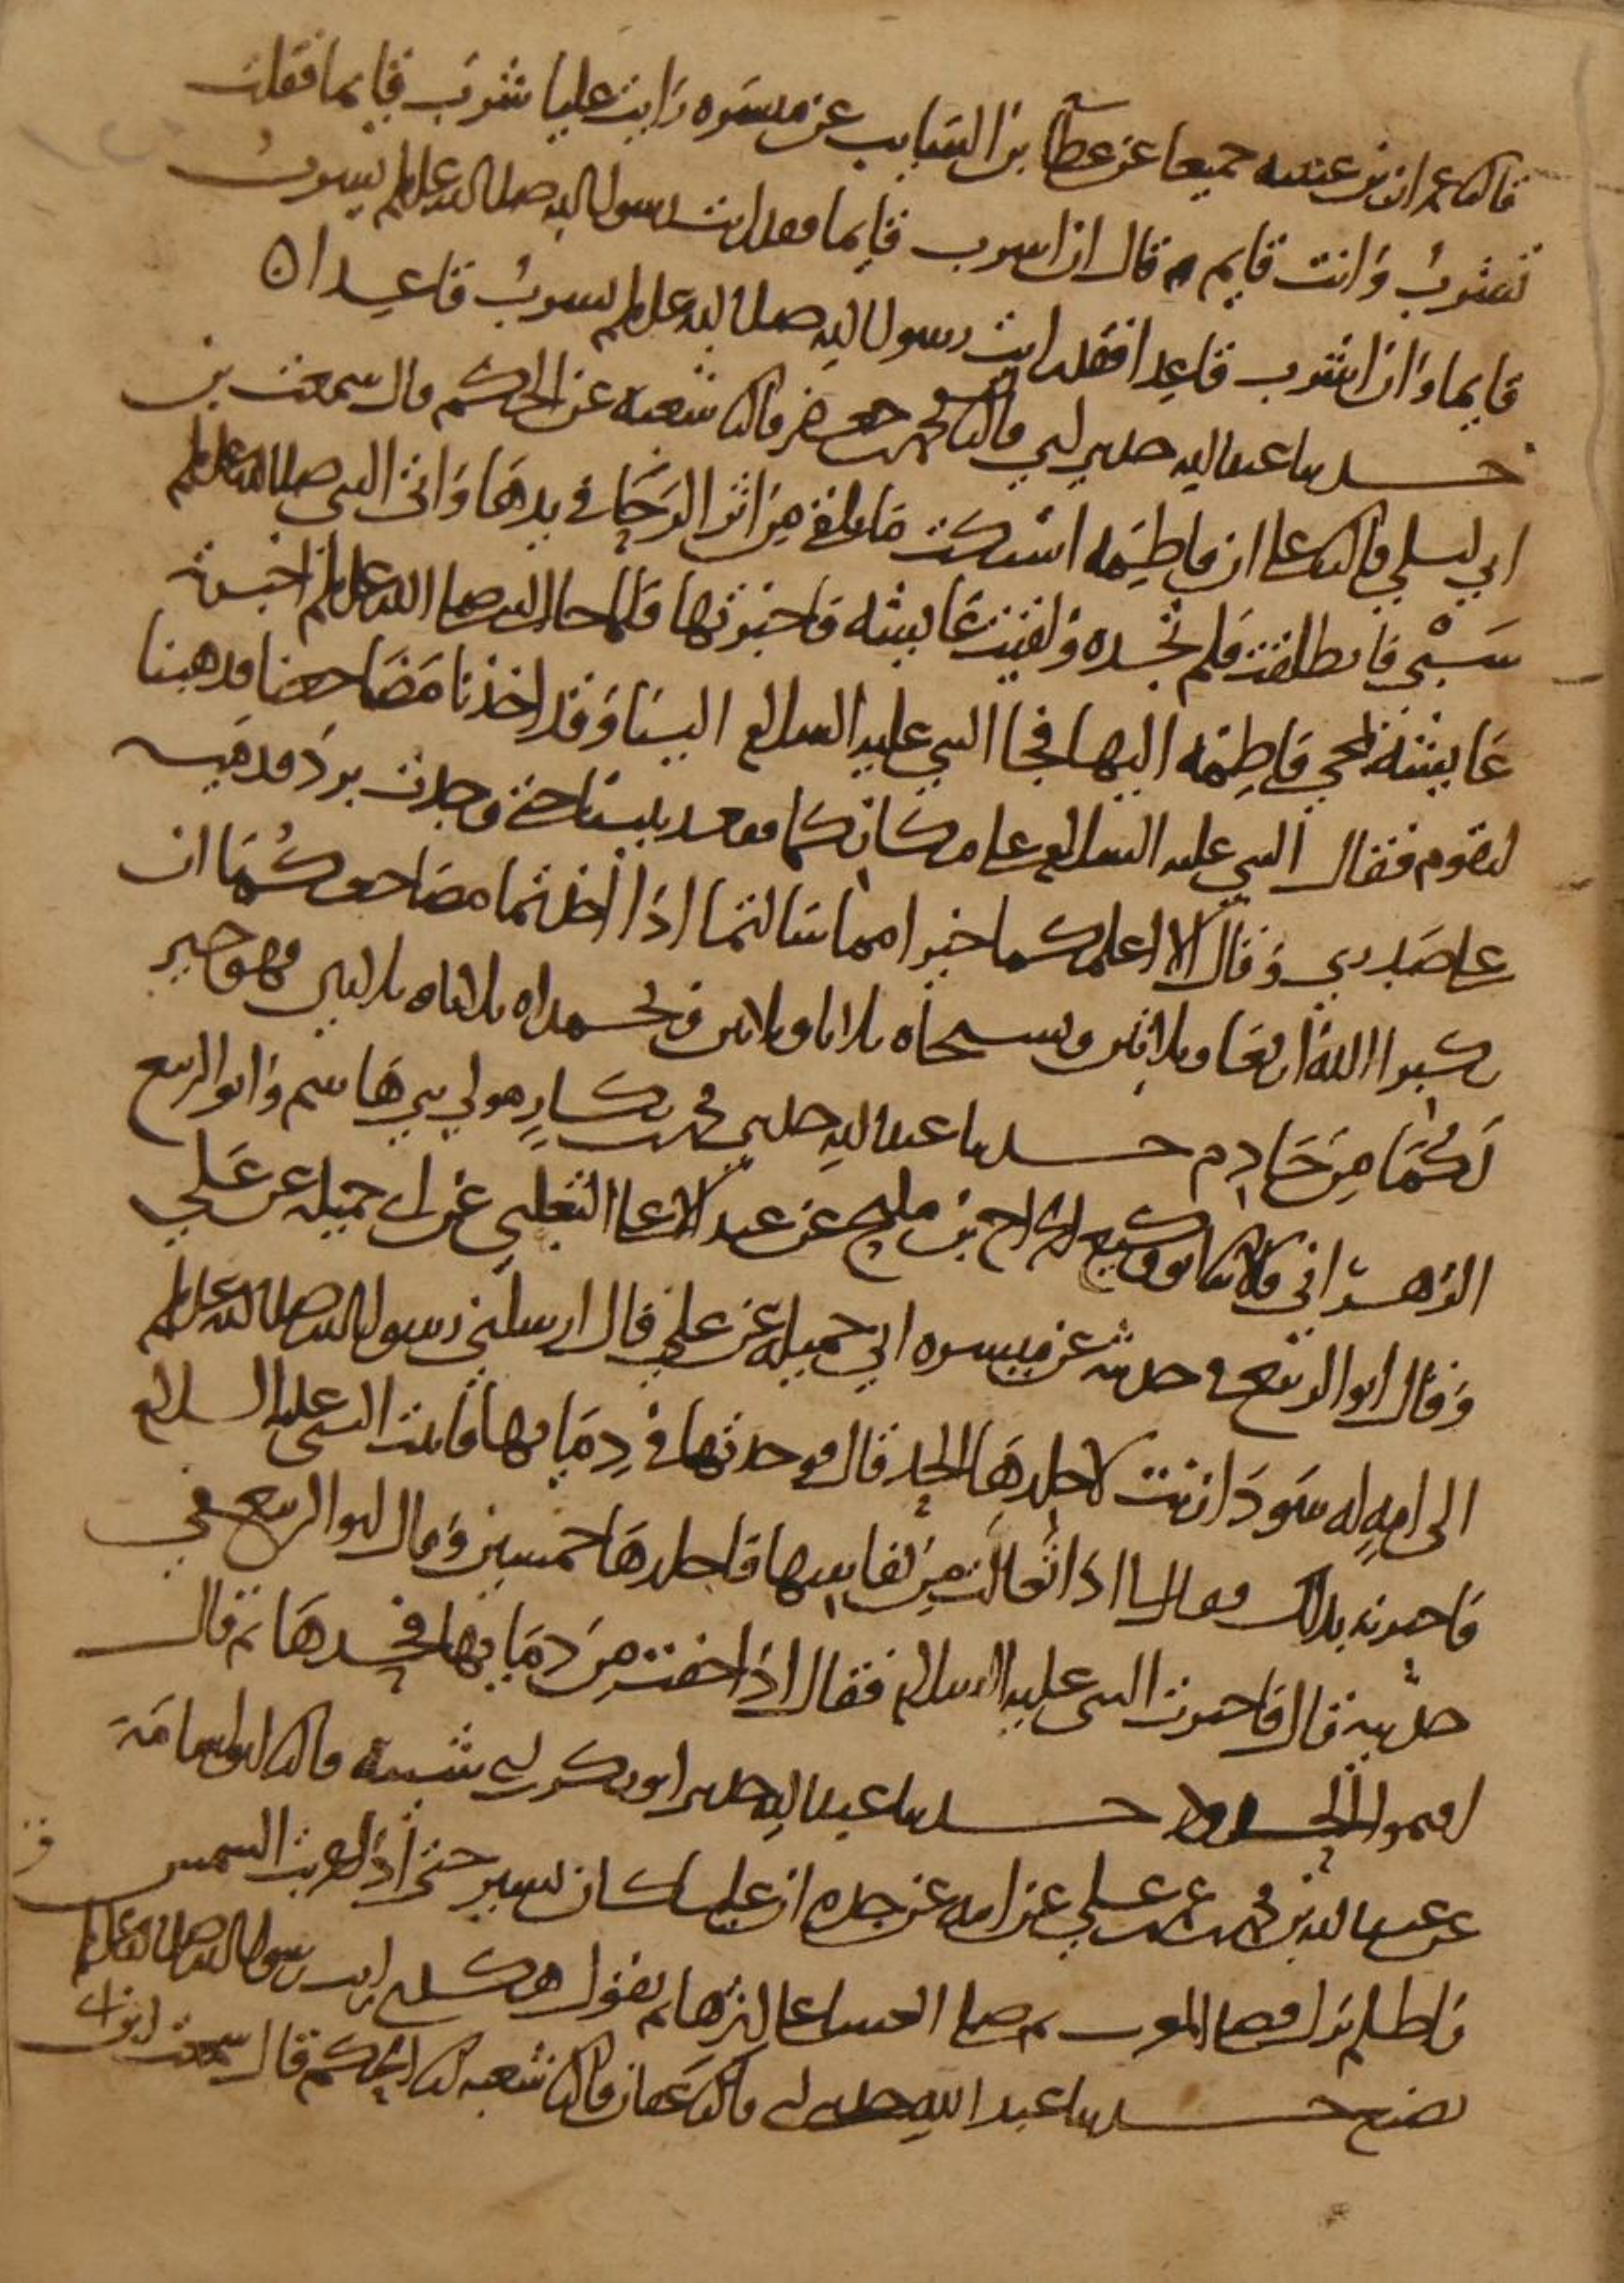 قالنا عمران بن عيينه جميعا عن عطا بن السايب عن ميسره رايت عليا شرب قايما فقلت
تشرب وانت قايم قال ان اشرب قايما فقد رايت رسول الله صلى الله عليه وسلم يشرب
قايما وان اشرب قاعدا فقد رايت رسول الله صلى الله عليه وسلم يشرب قاعدا
حدثنا عبد الله حدثني ابي قالنا محمد بن جعفر قالنا شعبه عن الحكم قال سمعت بن
ابي ليلى قالنا علي ان فاطمه اشتكت ما تلقى من اثر الرحا في يدها واتى النبي صلى الله عليه وسلم
سبي فانطلقت فلم تجده ولقيت عايشه فاخبرتها فلما جا النبي صلى الله عليه وسلم اخبرته
عايشه بمجي فاطمه اليها فجا النبي عليه السلام الينا وقد اخذنا مضاجعنا فذهبنا
لنقوم فقال النبي عليه السلام على مكانكما فقعد بيننا حتى وجدت برد قدميه
على صدري وقال الا اعلمكما خيرا مما سالتما اذا اخذتما مضاجعكما ان
تكبرا الله اربعا وثلاثين وتسبحاه ثلاثا وثلاثين وتحمداه ثلاثا وثلاثين فهو خير
لكما من خادم حدثنا عبد الله حدثني محمد بن بكار مولى بني هاشم وابو الربيع
الزهراني قالا ثنا ابو وكيع الجراح بن مليح عن عبد الاعلى الثعلبي عن ابي جميله عن علي
وقال ابو الربيع في حديثه عن ميسره ابي جميله عن علي قال ارسلني رسول الله صلى الله عليه وسلم
الى امه له سودا زنت لاجلدها الحد قال فوجدتها في دمايها فاتيت النبي عليه السلام
فاخبرته بذلك فقال لي اذا تعالت من نفاسها فاجلدها خمسين وقال ابو الربيع في
حديثه قال فاخبرت النبي عليه السلام فقال اذا جفت من دمايها فحدها ثم قال
اقيموا الحدود حدثنا عبد الله حدثني ابو بكر بن ابي شيبه قالنا ابو اسامة
عن عبد الله بن محمد بن عمر بن علي عن ابيه عن جده ان عليا كان يسير حتى اذا غربت الشمس
واظلم نزل فصلى المغرب ثم صلى العشا على اثرها ثم يقول هكذا رايت رسول الله صلى الله عليه وسلم
يصنع حدثنا عبد الله حدثني ابي قالنا عفان قالنا شعبه انا الحكم قال سمعت ابن ابي